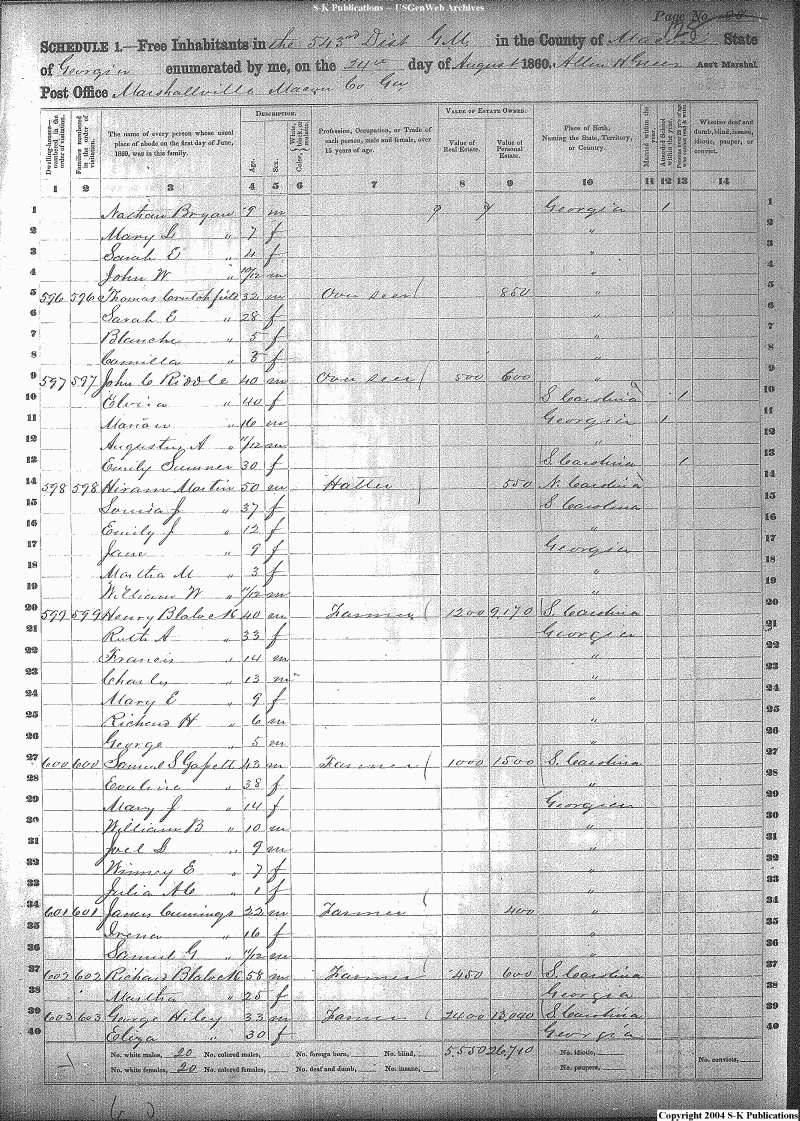 S-K Publications – USGenWeb Archives
Page No. 88
128
SCHEDULE 1.—Free Inhabitants in the 543rd Dist G.M. in the County of Macon State
of Georgia enumerated by me, on the 24th day of August 1860. Allen H Greer Ass't Marshal
Post Office Marshallville Macon Co Ga
Dwelling-houses—numbered in the order of visitation. Families numbered in the order of visitation. The name of every person whose usual place of abode on the first day of June, 1860, was in this family. DESCRIPTION. Age. Sex. Color, White, black, or mulatto. Profession, Occupation, or Trade of each person, male and female, over 15 years of age. VALUE OF ESTATE OWNED. Value of Real Estate. Value of Personal Estate. Place of Birth, Naming the State, Territory, or Country. Married within the year. Attended School within the year. Whether deaf and dumb, blind, insane, idiotic, pauper, or convict.
1 2 3 4 5 6 7 8 9 10 11 12 13 14
1 Nathan Bryan 9 m Georgia 1 1
2 Mary L " 7 f " 2
3 Sarah E " 4 f " 3
4 John W " 10/12 m " 4
5 596 596 Thomas Crutchfield 32 m Over seer 850 " 5
6 Sarah E " 28 f " 6
7 Blanche " 5 f " 7
8 Camilla " 3 f " 8
9 597 597 John C Riddle 40 m Over seer 500 600 " 9
10 Elvira " 40 f S Carolina 1 10
11 Marion " 16 m Georgia 1 11
12 Augustus A " 11/12 m " 12
13 Emily Sumner 30 f S. Carolina 1 13
14 598 598 Hiram Martin 50 m Hatter 550 N. Carolina 14
15 Louisa J " 37 f S Carolina 15
16 Emily J " 12 f " 16
17 Jane " 9 f Georgia 17
18 Martha M " 3 f " 18
19 William W " 11/12 m " 19
20 599 599 Henry Blalock 40 m Farmer 1200 9,170 S. Carolina 20
21 Ruth A " 33 f Georgia 21
22 Francis " 14 m " 22
23 Charles " 13 m " 23
24 Mary E " 9 f " 24
25 Richard H " 6 m " 25
26 George " 5 m " 26
27 600 600 Samuel S 43 m Farmer 1000 1500 S. Carolina 27
28 Evaline " 38 f " 28
29 Mary J " 14 f Georgia 29
30 William B " 10 m " 30
31 Joel D " 9 m " 31
32 Winney E " 7 f " 32
33 Julia " 1 f " 33
34 601 601 James Cummings 22 m Farmer 400 " 34
35 Irena " 16 f " 35
36 Samuel G " 11/12 m " 36
37 602 602 Richard Blalock 58 m Farmer 450 600 S. Carolina 37
38 Martha " 25 f Georgia 38
39 603 603 George Hiley 33 m Farmer 2400 13,040 S Carolina 39
40 Eliza " 30 f Georgia 40
No. white males, 20 No. colored males, No. foreign born, No. blind, 5,550 26,710 No. idiotic,
No. white females, 20 No. colored females, No. deaf and dumb, No. insane, No. paupers, No. convicts,
Copyright 2004 S-K Publications